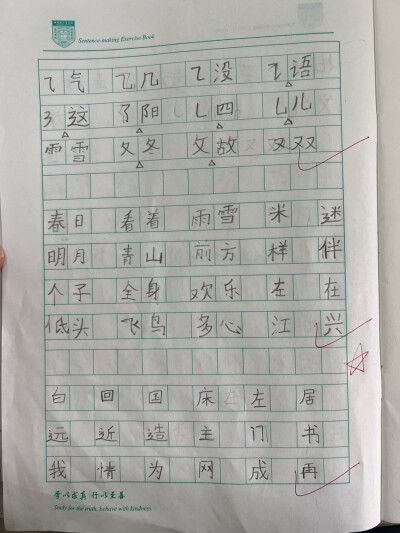 Sentence-making Exercise Book
⺄ 气 ⺄ 几 ㇍ 没 ㇊ 语
㇋ 这 ㇌ 阳 ㇄ 四 ㇟ 儿
雨 雪 夂 冬 攵 故 又 双
春日 看着 雨雪 米 迷
明月 青山 前方 样 伴
个子 全身 欢乐 左 在
低头 飞鸟 多心 江 兴
白 回 国 床 左 居
远 近 造 主 门 书
我 情 为 网 成 再
学以求真 行以至善
Study for the truth, behave with kindness.